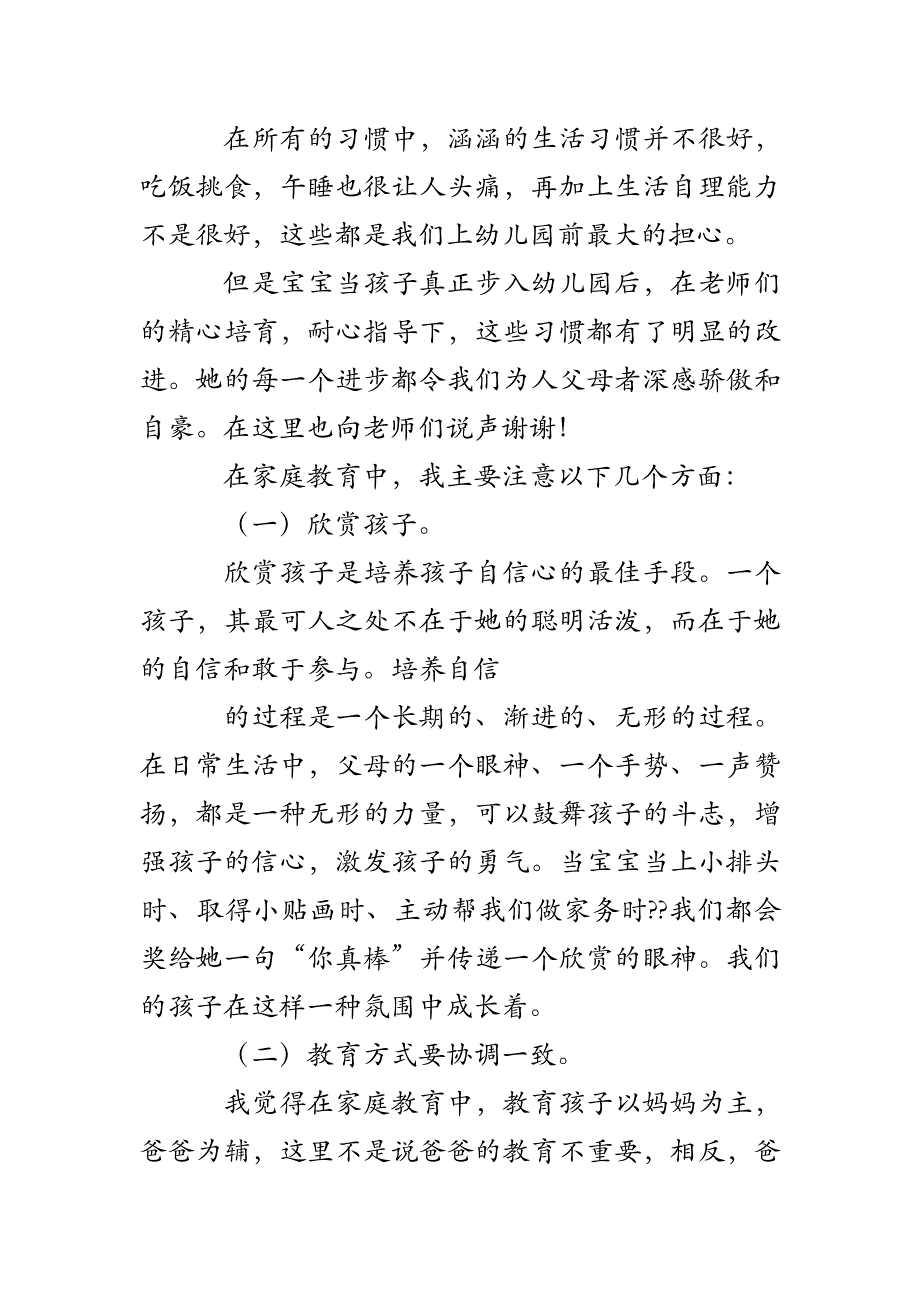 在所有的习惯中，涵涵的生活习惯并不很好，
吃饭挑食，午睡也很让人头痛，再加上生活自理能力
不是很好，这些都是我们上幼儿园前最大的担心。
但是宝宝当孩子真正步入幼儿园后，在老师们
的精心培育，耐心指导下，这些习惯都有了明显的改
进。她的每一个进步都令我们为人父母者深感骄傲和
自豪。在这里也向老师们说声谢谢！
在家庭教育中，我主要注意以下几个方面：
（一）欣赏孩子。
欣赏孩子是培养孩子自信心的最佳手段。一个
孩子，其最可人之处不在于她的聪明活泼，而在于她
的自信和敢于参与。培养自信
的过程是一个长期的、渐进的、无形的过程。
在日常生活中，父母的一个眼神、一个手势、一声赞
扬，都是一种无形的力量，可以鼓舞孩子的斗志，增
强孩子的信心，激发孩子的勇气。当宝宝当上小排头
时、取得小贴画时、主动帮我们做家务时??我们都会
奖给她一句“你真棒”并传递一个欣赏的眼神。我们
的孩子在这样一种氛围中成长着。
（二）教育方式要协调一致。
我觉得在家庭教育中，教育孩子以妈妈为主，
爸爸为辅，这里不是说爸爸的教育不重要，相反，爸